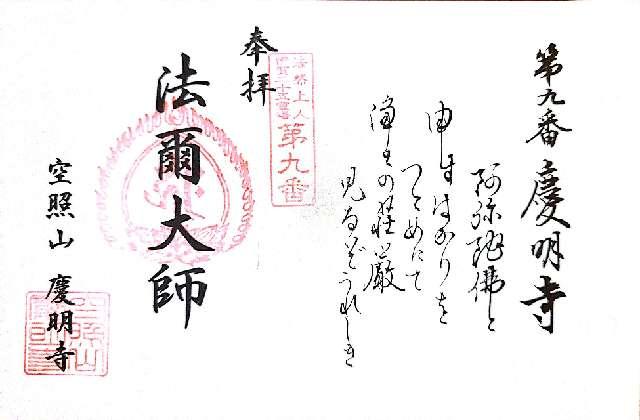 第九番 慶明寺
阿弥陀佛と
申すばかりを
つとめにて
浄土の荘厳
見るぞうれしき
奉拝
法然上人
第九番
法爾大師
空照山 慶明寺